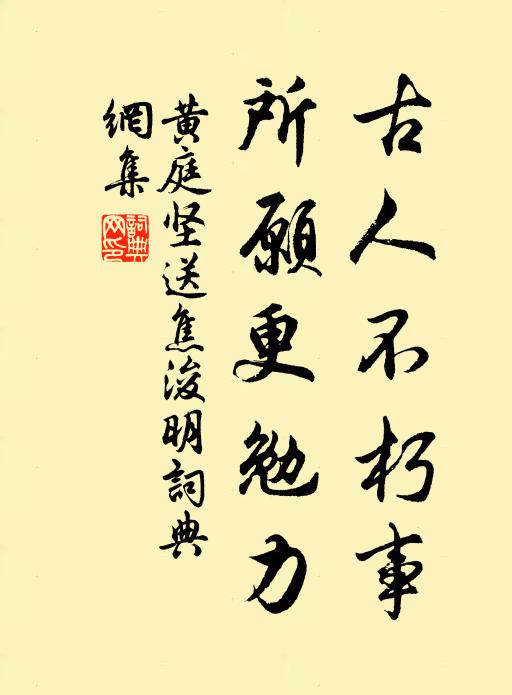 古人不朽事
所願更勉力
黄庭坚送焦浚明詞典
網集
詞典
网印